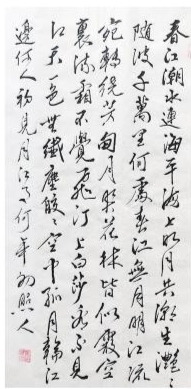 春江潮水連海平海上明月共潮生灩々
随波千萬里何處春江無月明江流
宛轉繞芳甸月照花林皆似霰空
裏流霜不覺飛汀上白沙看不見
江天一色無纖塵皎々空中孤月輪江
邊何人初見月江月何年初照人